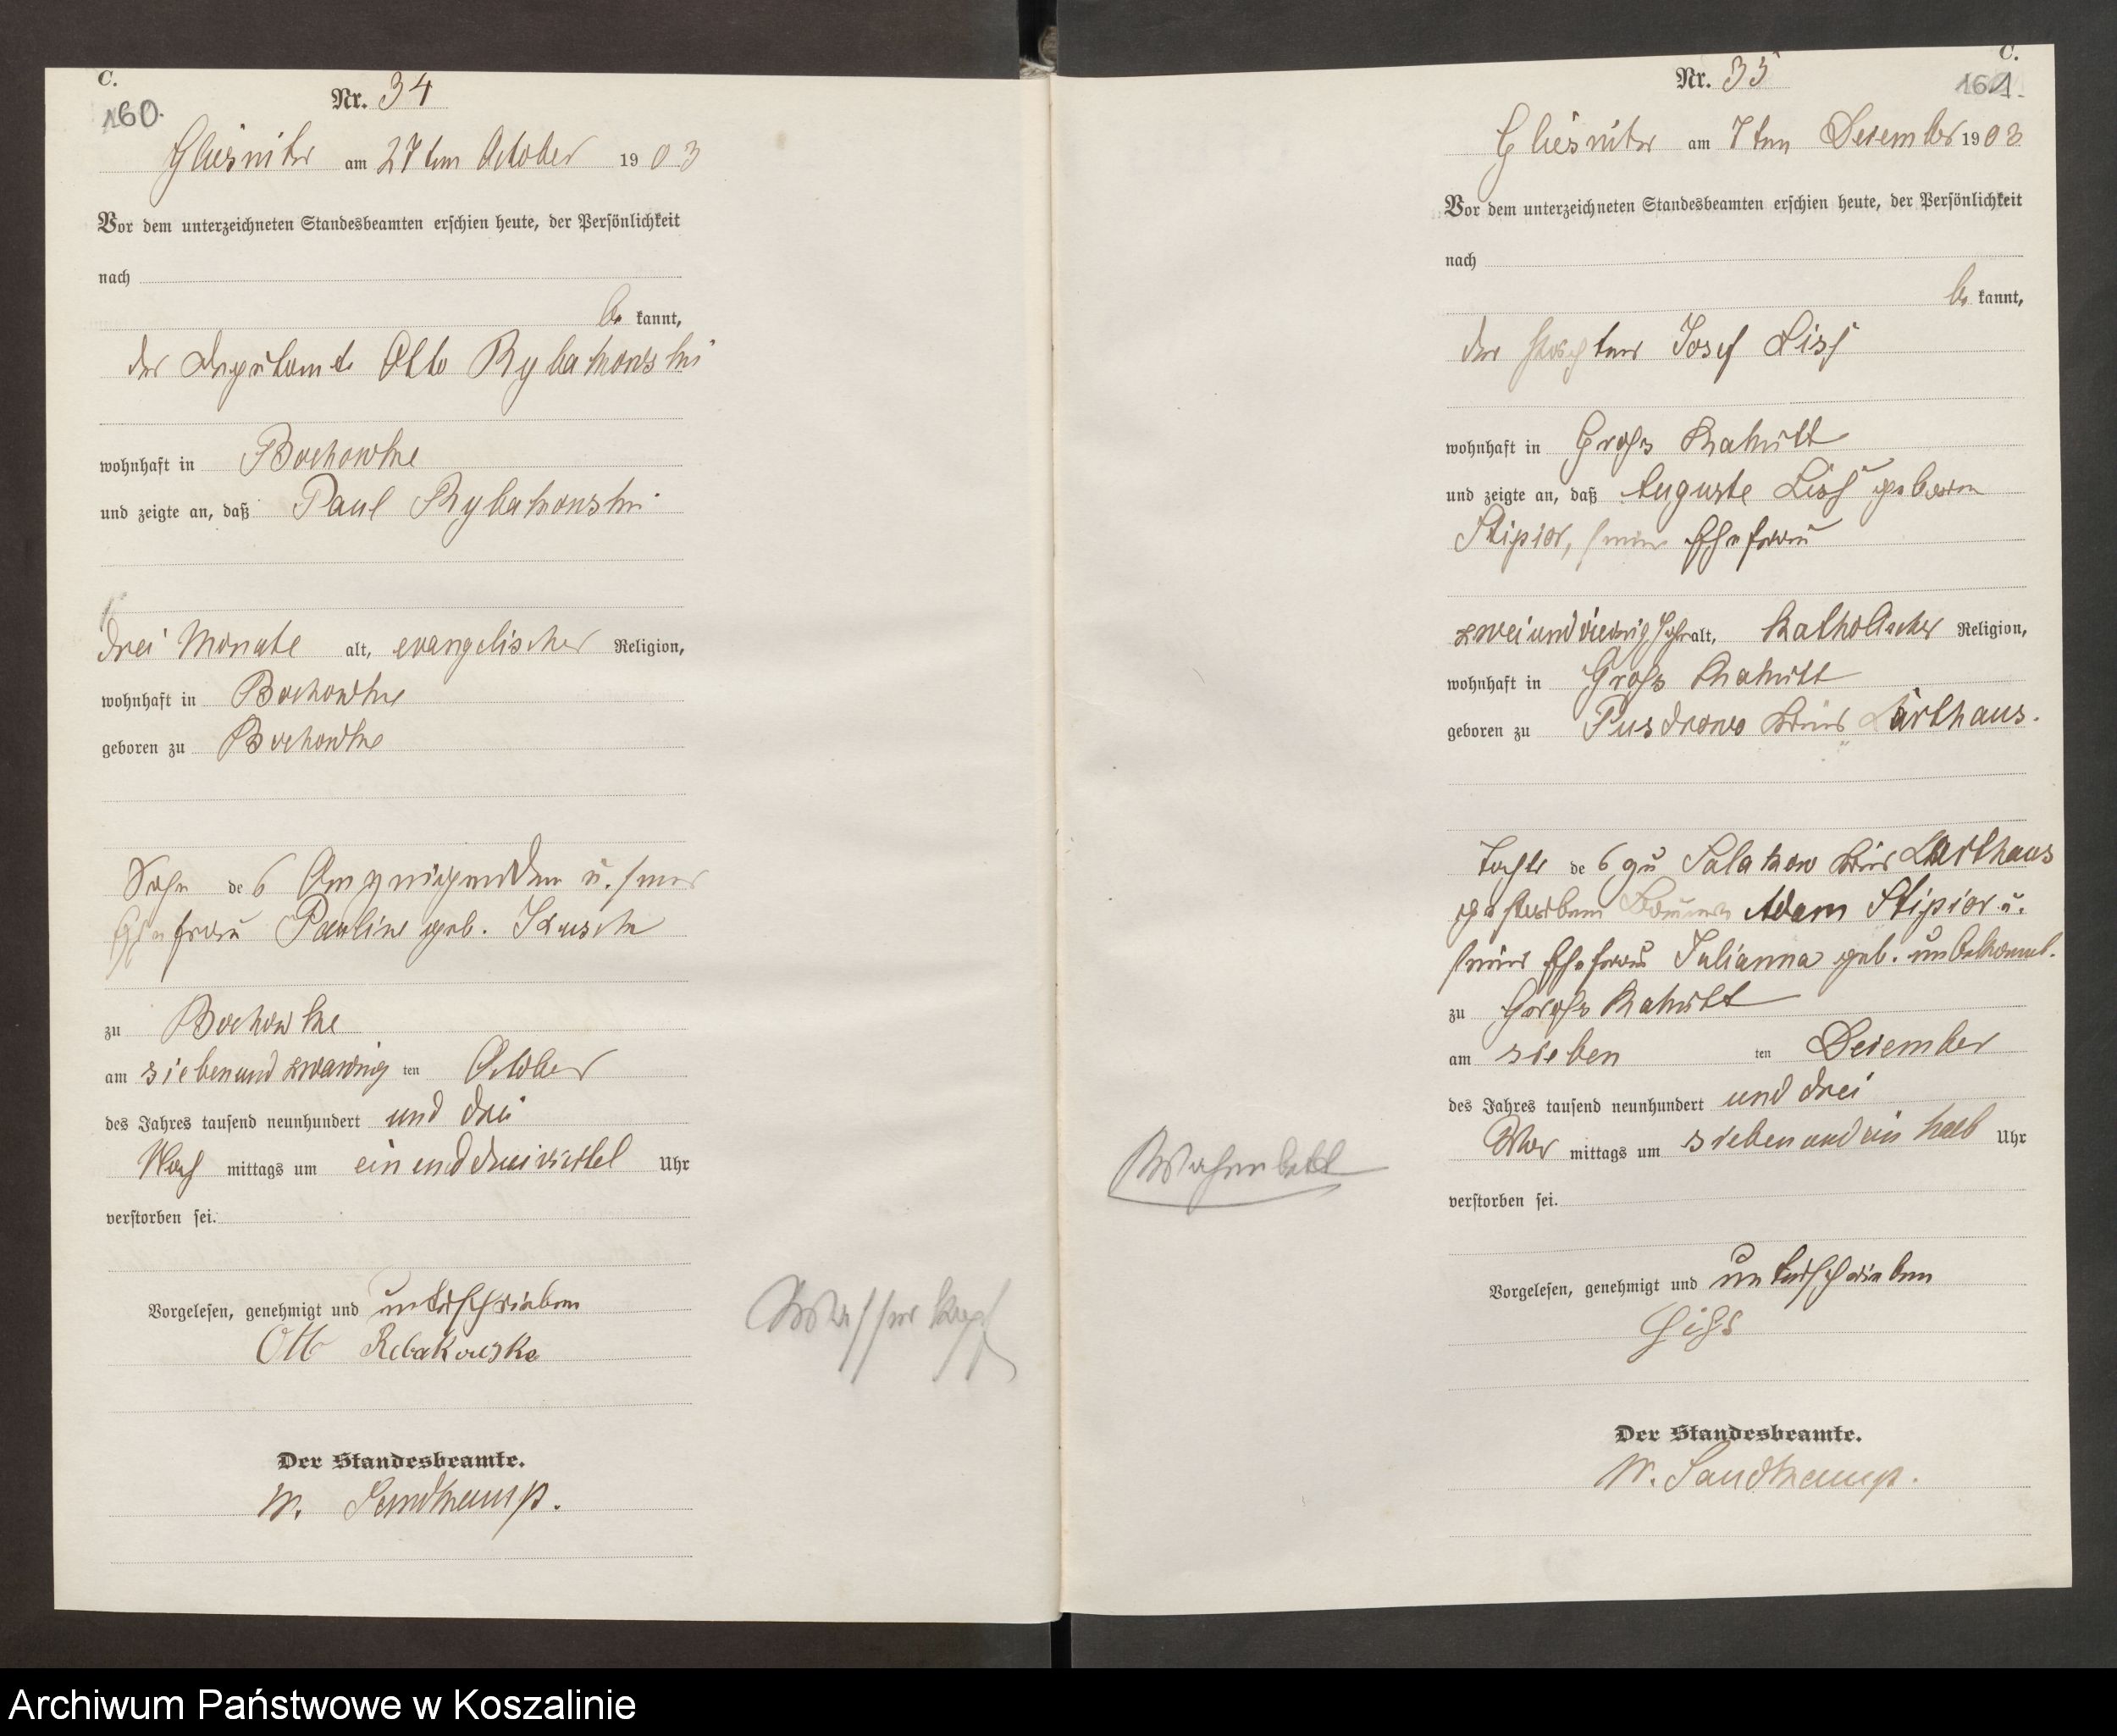 C.
160.
Nr. 34
Gliesnitz am 27ten October 1903
Vor dem unterzeichneten Standesbeamten erschien heute, der Persönlichkeit
nach
be kannt,
der Deputant Otto Rybakowski
wohnhaft in Bochowke
und zeigte an, daß Paul Rybakowski
drei Monate alt, evangelischer Religion,
wohnhaft in Bochowke
geboren zu Bochowke
Sohn des Anzeigenden u. seiner
Ehefrau Pauline geb.
zu Bochowke
am siebenundzwanzig ten October
des Jahres tausend neunhundert und drei
Nach mittags um ein und dreiviertel Uhr
verstorben sei.
Vorgelesen, genehmigt und unterschrieben
Otto Rebakowske
Der Standesbeamte.
W. Sandkamp.
Wasserkopf
C.
161.
Nr. 35
Gliesnitz am 7ten Dezember 1903
Vor dem unterzeichneten Standesbeamten erschien heute, der Persönlichkeit
nach
be kannt,
der Josef Liss
wohnhaft in Gross Rakitt
und zeigte an, daß Auguste Liss geboren
Stipior, seine Ehefrau
zweiundvierzig Jahr alt, katholischer Religion,
wohnhaft in Gross Rakitt
geboren zu Pusdrowo Kreis Carthaus.
Tochter des zu Salakow Kreis Carthaus
gestorbenen Adam Stipior u.
seiner Ehefrau Julianna geb. unbekannt.
zu Gross Rakitt
am sieben ten Dezember
des Jahres tausend neunhundert und drei
Vor mittags um sieben und ein halb Uhr
verstorben sei.
Wochenbett
Vorgelesen, genehmigt und unterschrieben
Der Standesbeamte.
W. Sandkamp.
Archiwum Państwowe w Koszalinie